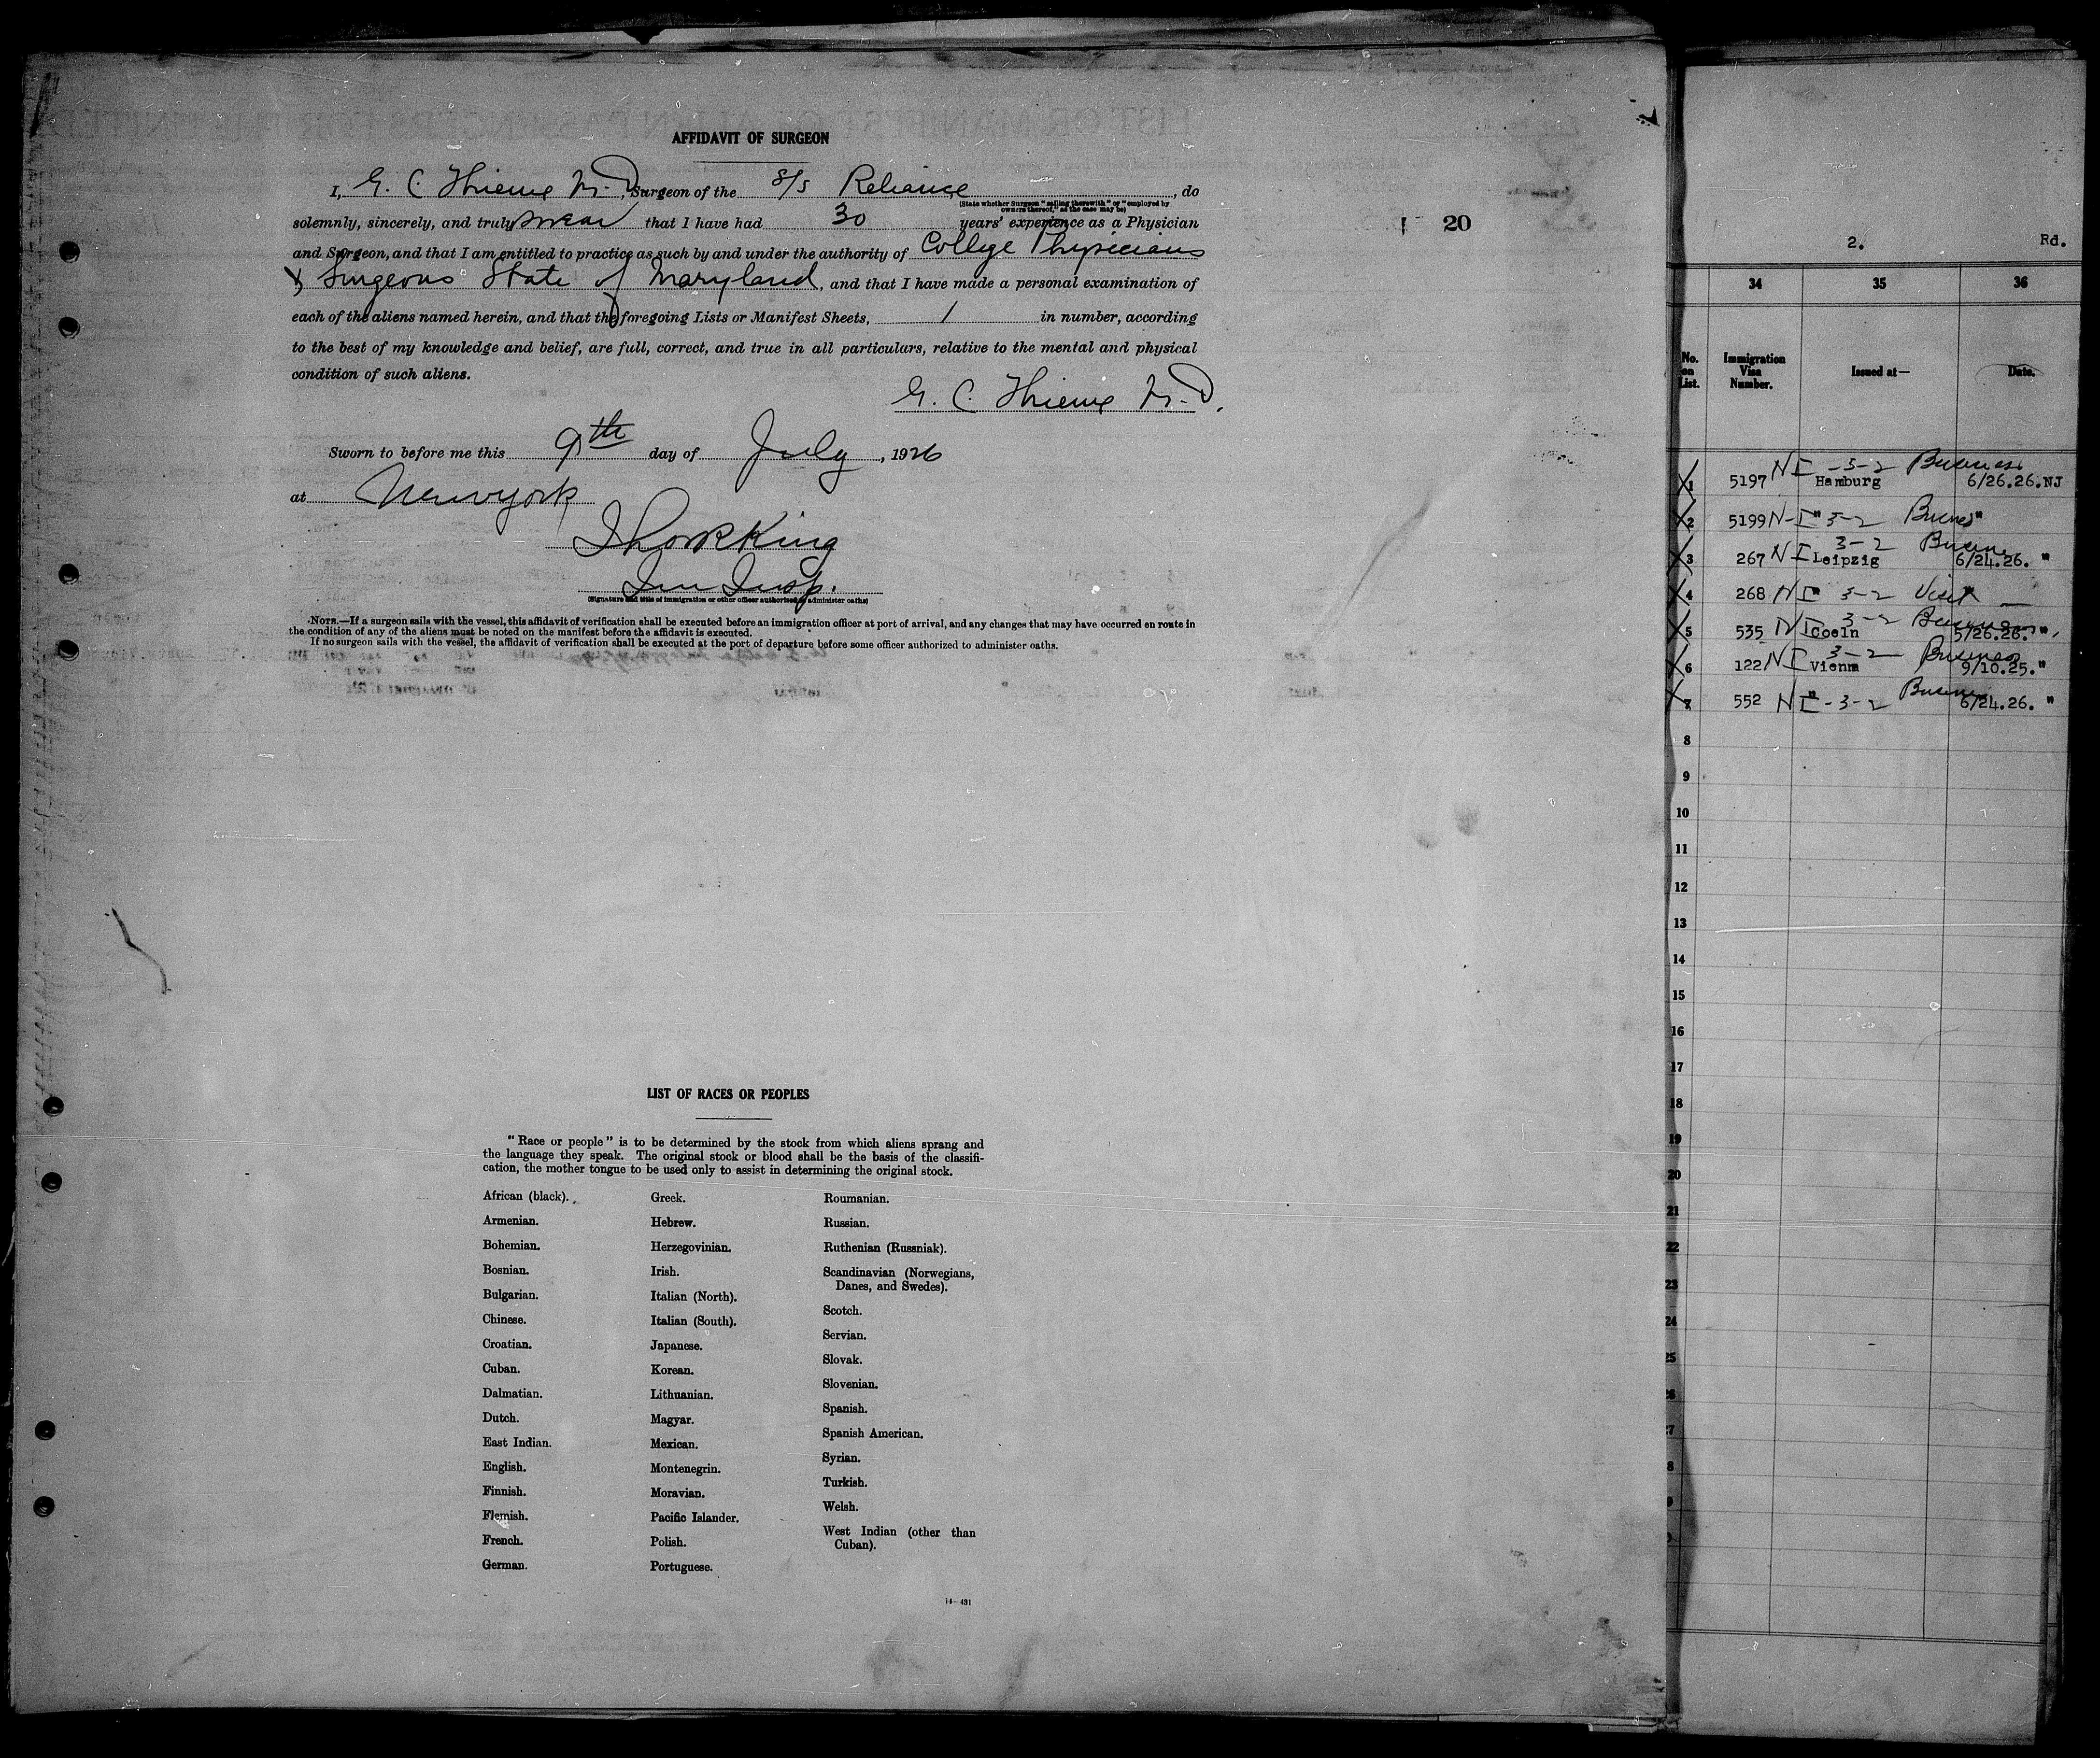 AFFIDAVIT OF SURGEON
I, G. C. Thieme M.D., Surgeon of the S/S Reliance, do
(State whether Surgeon "sailing therewith" or "employed by
owners thereof," as the case may be)
solemnly, sincerely, and truly swear that I have had 30 years' experience as a Physician
and Surgeon, and that I am entitled to practice as such by and under the authority of College Physicians
& Surgeons State of Maryland, and that I have made a personal examination of
each of the aliens named herein, and that the foregoing Lists or Manifest Sheets, 1 in number, according
to the best of my knowledge and belief, are full, correct, and true in all particulars, relative to the mental and physical
condition of such aliens.
G. C. Thieme M.D.
Sworn to before me this 9th day of July, 1926
at New york
King
Imm Insp.
(Signature and title of immigration or other officer authorized to administer oaths)
NOTE.—If a surgeon sails with the vessel, this affidavit of verification shall be executed before an immigration officer at port of arrival, and any changes that may have occurred en route in
the condition of any of the aliens must be noted on the manifest before the affidavit is executed.
If no surgeon sails with the vessel, the affidavit of verification shall be executed at the port of departure before some officer authorized to administer oaths.
20
LIST OF RACES OR PEOPLES
"Race or people" is to be determined by the stock from which aliens sprang and
the language they speak. The original stock or blood shall be the basis of the classifi-
cation, the mother tongue to be used only to assist in determining the original stock.
African (black).
Armenian.
Bohemian.
Bosnian.
Bulgarian.
Chinese.
Croatian.
Cuban.
Dalmatian.
Dutch.
East Indian.
English.
Finnish.
Flemish.
French.
German.
Greek.
Hebrew.
Herzegovinian.
Irish.
Italian (North).
Italian (South).
Japanese.
Korean.
Lithuanian.
Magyar.
Mexican.
Montenegrin.
Moravian.
Pacific Islander.
Polish.
Portuguese.
Roumanian.
Russian.
Ruthenian (Russniak).
Scandinavian (Norwegians,
Danes, and Swedes).
Scotch.
Servian.
Slovak.
Slovenian.
Spanish.
Spanish American.
Syrian.
Turkish.
Welsh.
West Indian (other than
Cuban).
14—431
2. Rd.
34 35 36
No. on List. Immigration Visa Number. Issued at— Date.
1 5197 NI -3-2 Business Hamburg 6/26.26. NJ
2 5199 N-I " 3-2 Business "
3 267 NI 3-2 Business Leipzig 6/24.26. "
4 268 NI " 3-2 Visit "
5 535 NI 3-2 Business Coeln 5/26.26. "
6 122 NI 3-2 Business Vienna 9/10.25. "
7 552 NI " -3-2 Business 6/24.26. "
8
9
10
11
12
13
14
15
16
17
18
19
20
21
22
23
24
25
26
27